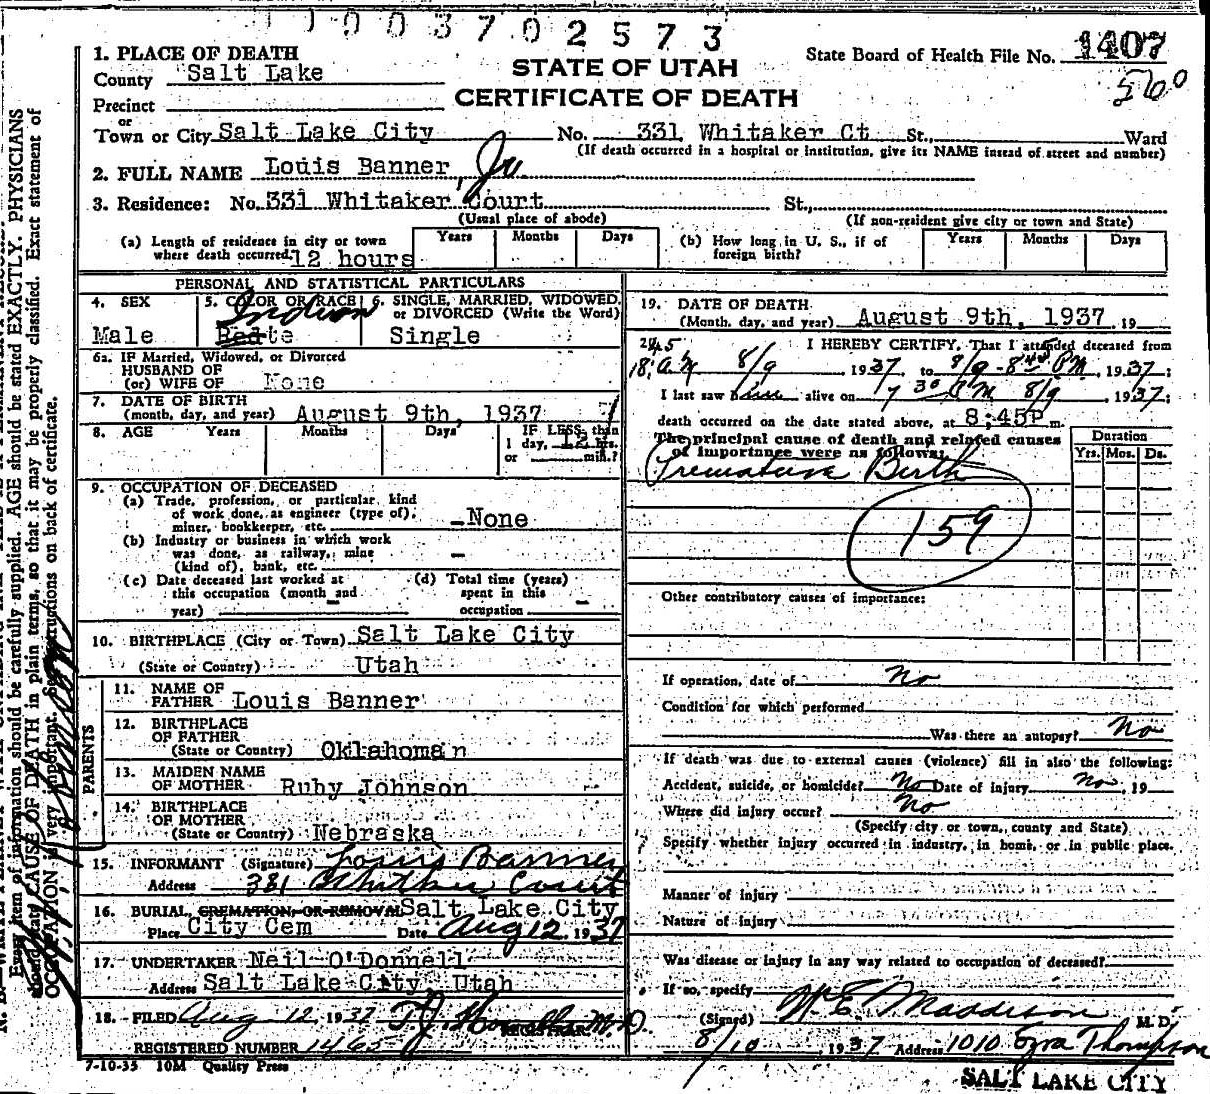 1003702573
1. PLACE OF DEATH
County Salt Lake
Precinct
or
Town or City Salt Lake City No. 331 Whitaker Ct St., Ward
(If death occurred in a hospital or institution, give its NAME instead of street and number)
STATE OF UTAH
CERTIFICATE OF DEATH
State Board of Health File No. 1407
560
2. FULL NAME Louis Banner, Jr.
3. Residence: No. 331 Whitaker Court St.,
(Usual place of abode) (If non-resident give city or town and State)
(a) Length of residence in city or town where death occurred. 12 hours
Years Months Days
(b) How long in U. S., if of foreign birth?
Years Months Days
PERSONAL AND STATISTICAL PARTICULARS
4. SEX
Male
5. COLOR OR RACE
Indian
6. SINGLE, MARRIED, WIDOWED, or DIVORCED (Write the Word)
Single
6a. IF Married, Widowed, or Divorced
HUSBAND OF
(or) WIFE OF None
7. DATE OF BIRTH
(month, day, and year) August 9th, 1937
8. AGE Years Months Days
IF LESS than
1 day, 12 hrs.
or min.?
9. OCCUPATION OF DECEASED
(a) Trade, profession, or particular kind
of work done, as engineer (type of),
miner, bookkeeper, etc. -None
(b) Industry or business in which work
was done, as railway, mine
(kind of), bank, etc. -
(c) Date deceased last worked at
this occupation (month and
year) -
(d) Total time (years)
spent in this
occupation -
10. BIRTHPLACE (City or Town) Salt Lake City
(State or Country) Utah
PARENTS
11. NAME OF
FATHER Louis Banner
12. BIRTHPLACE
OF FATHER
(State or Country) Oklahoman
13. MAIDEN NAME
OF MOTHER Ruby Johnson
14. BIRTHPLACE
OF MOTHER
(State or Country) Nebraska
15. INFORMANT (Signature) Louis Banner
Address 331 Whitker Court
16. BURIAL, CREMATION, OR REMOVAL Salt Lake City
Place City Cem Date Aug 12, 1937
17. UNDERTAKER Neil O'Donnell
Address Salt Lake City, Utah
18. FILED Aug 12, 1937 M.D.
REGISTRAR
REGISTERED NUMBER 1465
7-10-35 10M Quality Press
19. DATE OF DEATH
(Month, day, and year) August 9th, 1937 19
I HEREBY CERTIFY, That I attended deceased from
8:45 A M 8/9, 1937, to 8/9 - 8 45 P M, 1937;
I last saw him alive on 7 30 P M 8/9, 1937;
death occurred on the date stated above, at 8;45P m.
The principal cause of death and related causes
of importance were as follows:
Duration
Yrs. Mos. Ds.
Premature Birth
159
Other contributory causes of importance:
If operation, date of No
Condition for which performed
Was there an autopsy? No
If death was due to external causes (violence) fill in also the following:
Accident, suicide, or homicide? No Date of injury No, 19
Where did injury occur? No
(Specify city or town, county and State)
Specify whether injury occurred in industry, in home, or in public place.
Manner of injury
Nature of injury
Was disease or injury in any way related to occupation of deceased?
If so, specify
(Signed) W. E. Maddison M. D.
8/10, 1937 Address 1010 Ezra Thompson
SALT LAKE CITY
Every item of information should be carefully supplied. AGE should be stated EXACTLY. PHYSICIANS
should state CAUSE OF DEATH in plain terms, so that it may be properly classified. Exact statement of
OCCUPATION is very important. See instructions on back of certificate.